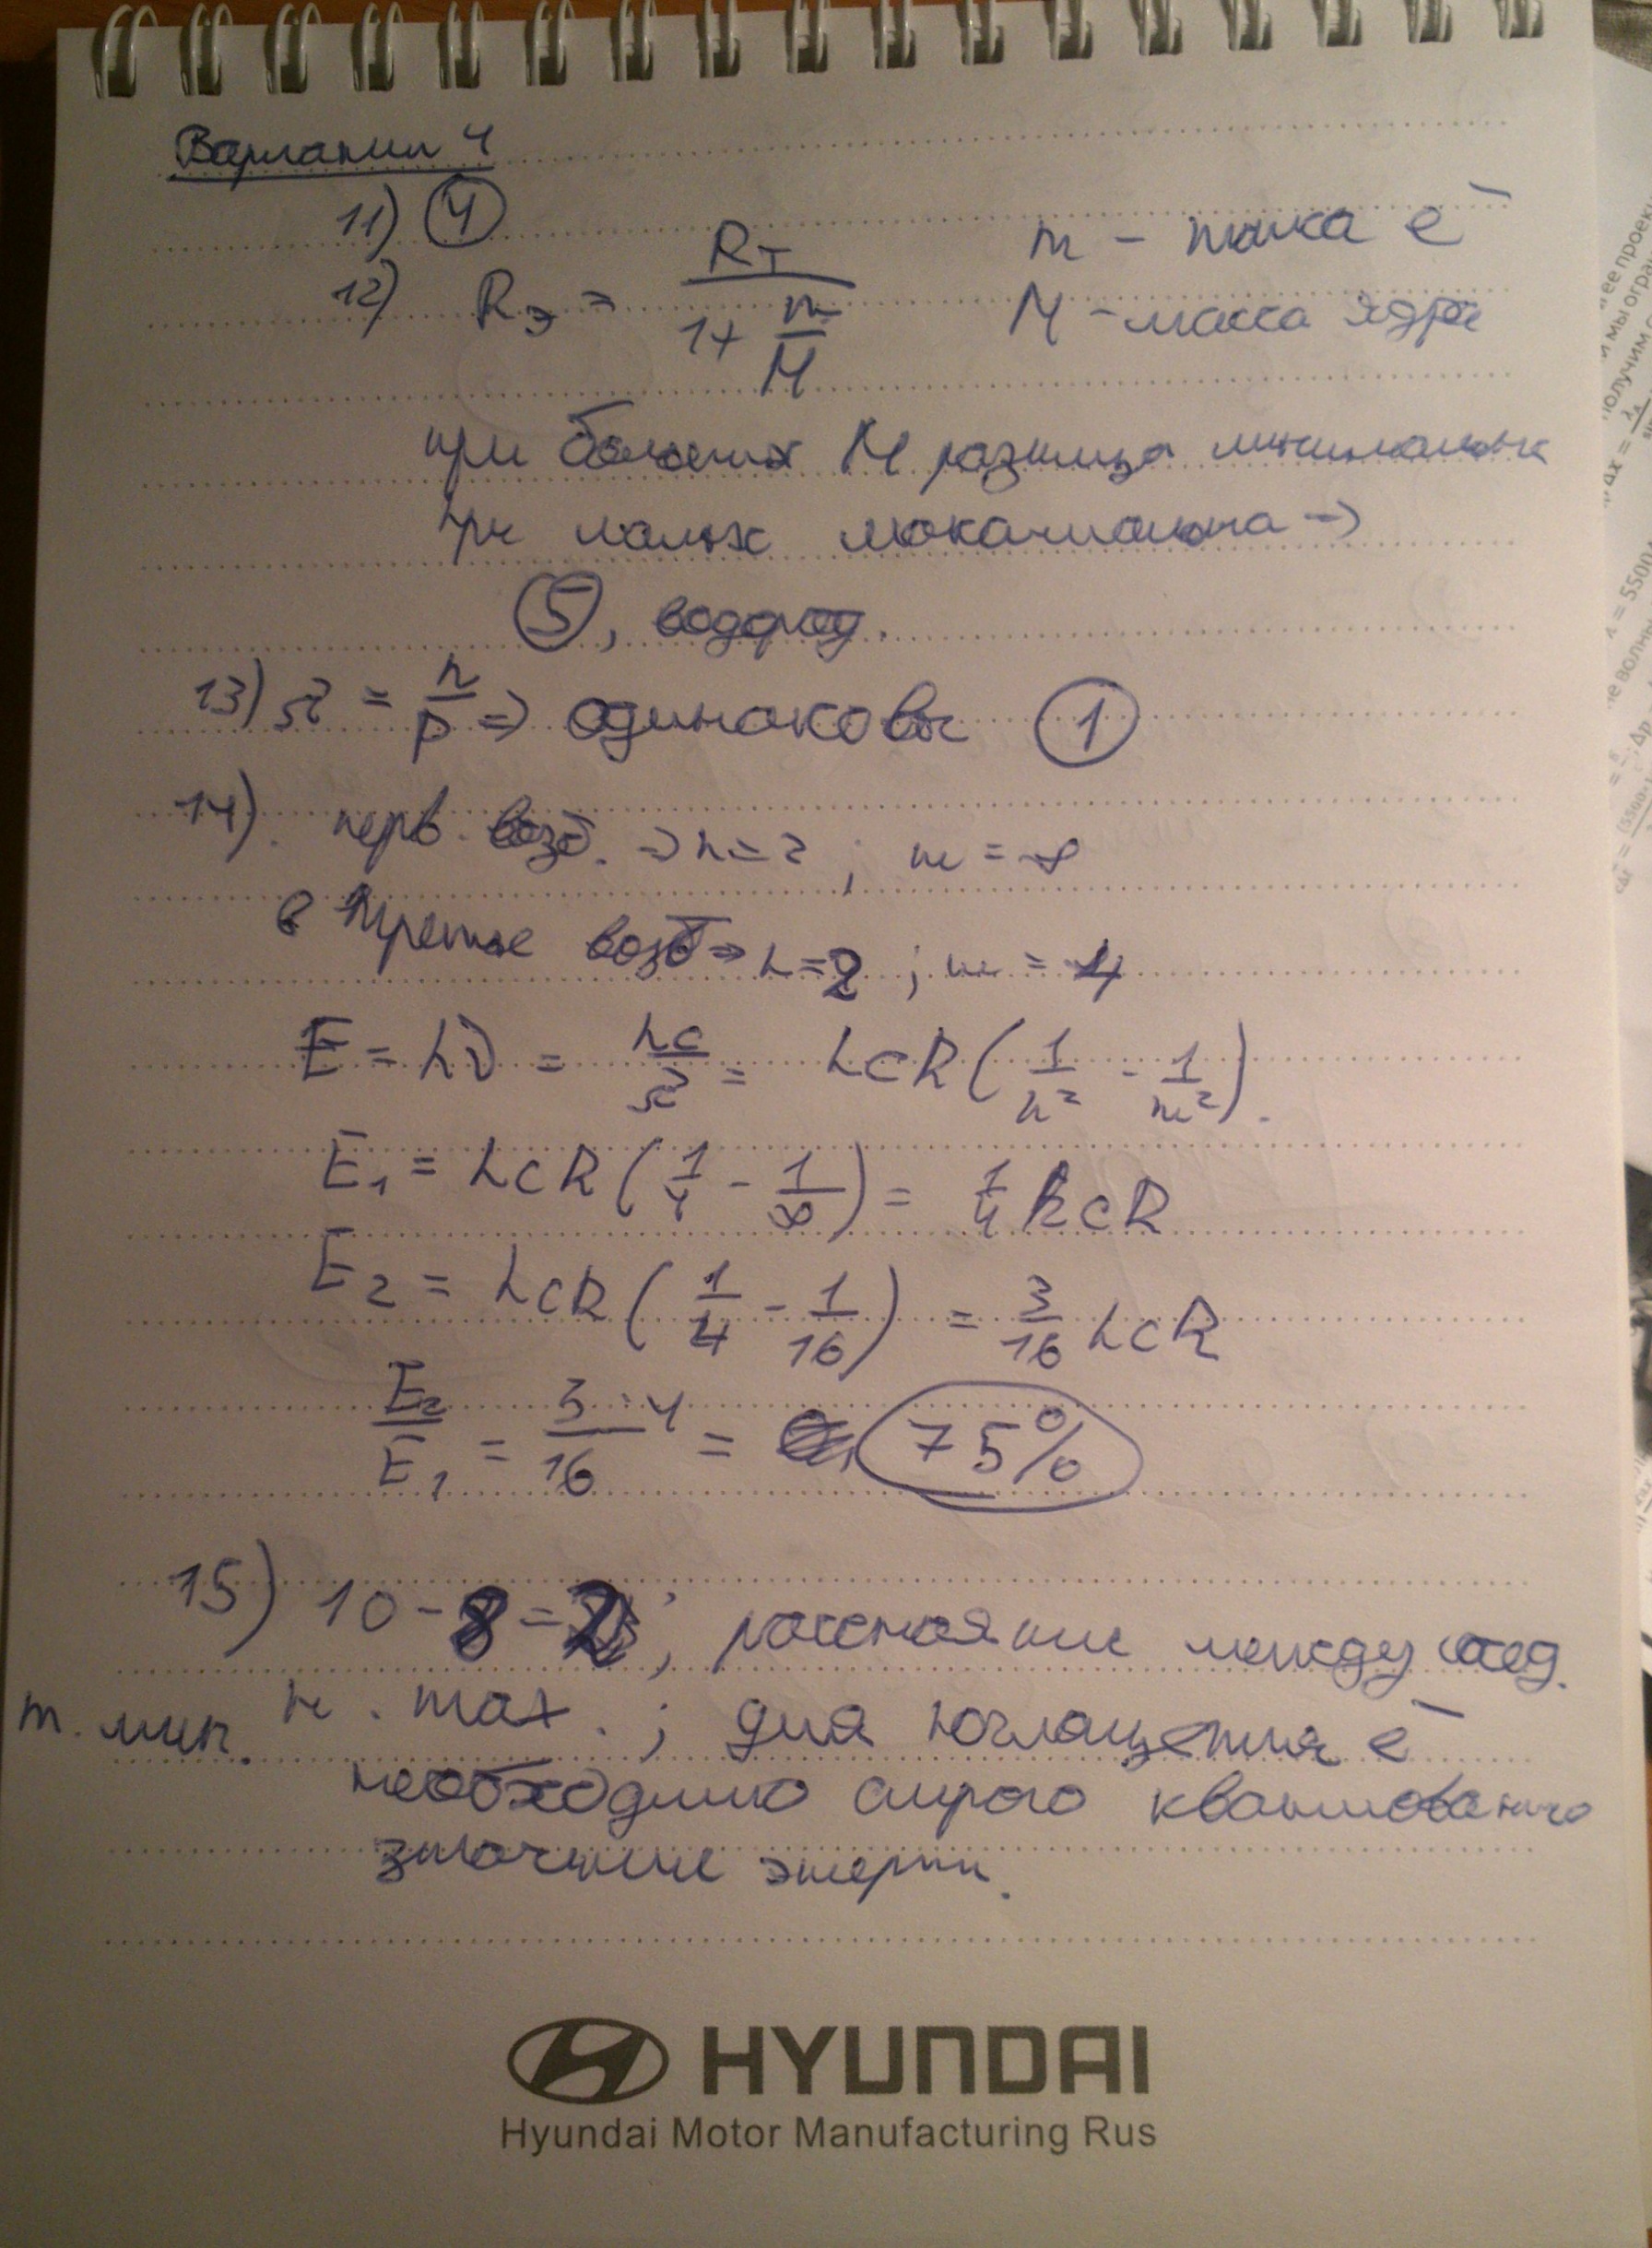 Вариант 4
11) 4
12) Rэ = Rт / (1 + m/M)
m - масса e⁻
M - масса ядра
при больших M разница минимальна
при малых максимальна →
5, водород.
13) λ = h/p ⇒ одинаковы 1
14). перв. возб. ⇒ n = 2 ; m = ∞
в третье возб ⇒ n = 2 ; m = 4
E = hν = hc/λ = hcR(1/n² - 1/m²).
E₁ = hcR(1/4 - 1/∞) = 1/4 hcR
E₂ = hcR(1/4 - 1/16) = 3/16 hcR
E₂/E₁ = 3·4/16 = 75%
15) 10 - 8 = 2 ; расстояние между сосед.
m. мин. и. max. ; для поглощения e⁻
необходимо строго квантованно
значение энергии.
HYUNDAI
Hyundai Motor Manufacturing Rus